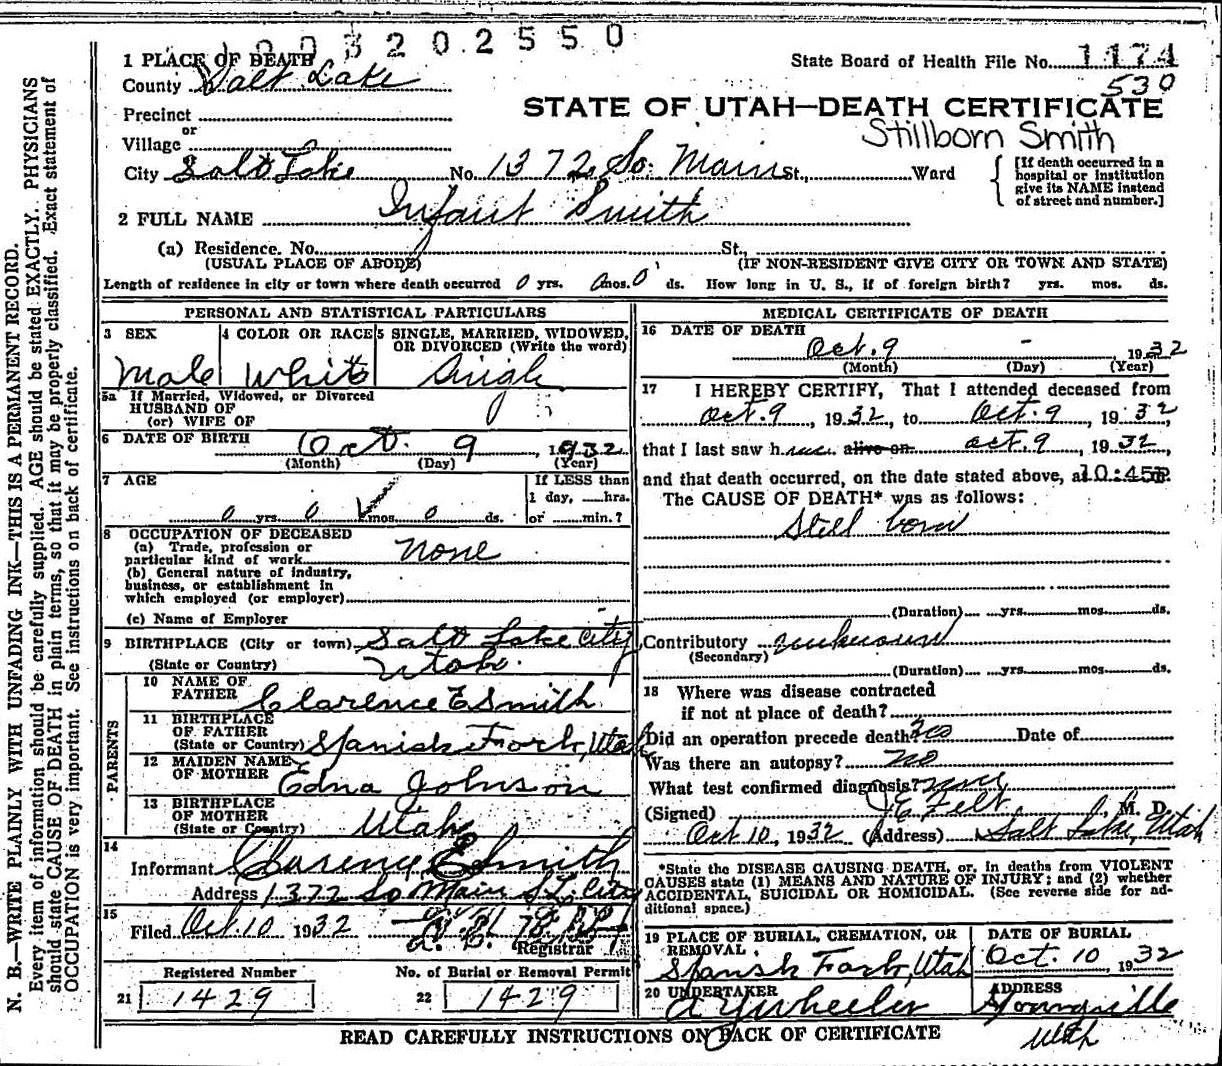 1 0 0 3 2 0 2 5 5 0
1 PLACE OF DEATH
State Board of Health File No. 1474
County Salt Lake
530
STATE OF UTAH—DEATH CERTIFICATE
Precinct
or
Village
Stillborn Smith
City Salt Lake No. 1372 So. Main St., Ward
[If death occurred in a hospital or institution give its NAME instead of street and number.]
2 FULL NAME Infant Smith
(a) Residence. No. St.,
(USUAL PLACE OF ABODE) (IF NON-RESIDENT GIVE CITY OR TOWN AND STATE)
Length of residence in city or town where death occurred 0 yrs. 0 mos. 0 ds. How long in U. S., if of foreign birth? yrs. mos. ds.
PERSONAL AND STATISTICAL PARTICULARS
3 SEX 4 COLOR OR RACE 5 SINGLE, MARRIED, WIDOWED, OR DIVORCED (Write the word)
Male White Single
5a If Married, Widowed, or Divorced
HUSBAND OF
(or) WIFE OF
6 DATE OF BIRTH Oct. 9, 1932
(Month) (Day) (Year)
7 AGE
If LESS than
1 day, hrs.
0 yrs. 0 mos. 0 ds. or min.?
8 OCCUPATION OF DECEASED
(a) Trade, profession or
particular kind of work none
(b) General nature of industry,
business, or establishment in
which employed (or employer)
(c) Name of Employer
9 BIRTHPLACE (City or town) Salt Lake City
(State or Country) Utah.
PARENTS
10 NAME OF FATHER Clarence E Smith
11 BIRTHPLACE OF FATHER (State or Country) Spanish Fork, Utah
12 MAIDEN NAME OF MOTHER Edna Johnson
13 BIRTHPLACE OF MOTHER (State or Country) Utah
14 Informant Clarence E Smith
Address 1372 So Main S L City
15 Filed Oct. 10 1932
Registrar
Registered Number No. of Burial or Removal Permit
21 1429 22 1429
MEDICAL CERTIFICATE OF DEATH
16 DATE OF DEATH
Oct. 9 - , 1932
(Month) (Day) (Year)
17 I HEREBY CERTIFY, That I attended deceased from
Oct. 9, 1932, to Oct. 9, 1932,
that I last saw h alive on Oct. 9, 1932,
and that death occurred, on the date stated above, at 10:45P.
The CAUSE OF DEATH* was as follows:
Still born
(Duration) yrs. mos. ds.
Contributory unknown
(Secondary)
(Duration) yrs. mos. ds.
18 Where was disease contracted
if not at place of death?
Did an operation precede death? Date of
Was there an autopsy? no
What test confirmed diagnosis?
(Signed) J. E. Felt, M. D.
Oct 10, 1932 (Address) Salt Lake, Utah
*State the DISEASE CAUSING DEATH, or, in deaths from VIOLENT
CAUSES state (1) MEANS AND NATURE OF INJURY; and (2) whether
ACCIDENTAL, SUICIDAL OR HOMICIDAL. (See reverse side for additional space.)
19 PLACE OF BURIAL, CREMATION, OR REMOVAL DATE OF BURIAL
Spanish Fork, Utah Oct. 10, 1932
20 UNDERTAKER ADDRESS
A Y Wheeler
Utah
READ CAREFULLY INSTRUCTIONS ON BACK OF CERTIFICATE
N. B.—WRITE PLAINLY WITH UNFADING INK—THIS IS A PERMANENT RECORD.
Every item of information should be carefully supplied. AGE should be stated EXACTLY. PHYSICIANS
should state CAUSE OF DEATH in plain terms, so that it may be properly classified. Exact statement of
OCCUPATION is very important. See instructions on back of certificate.